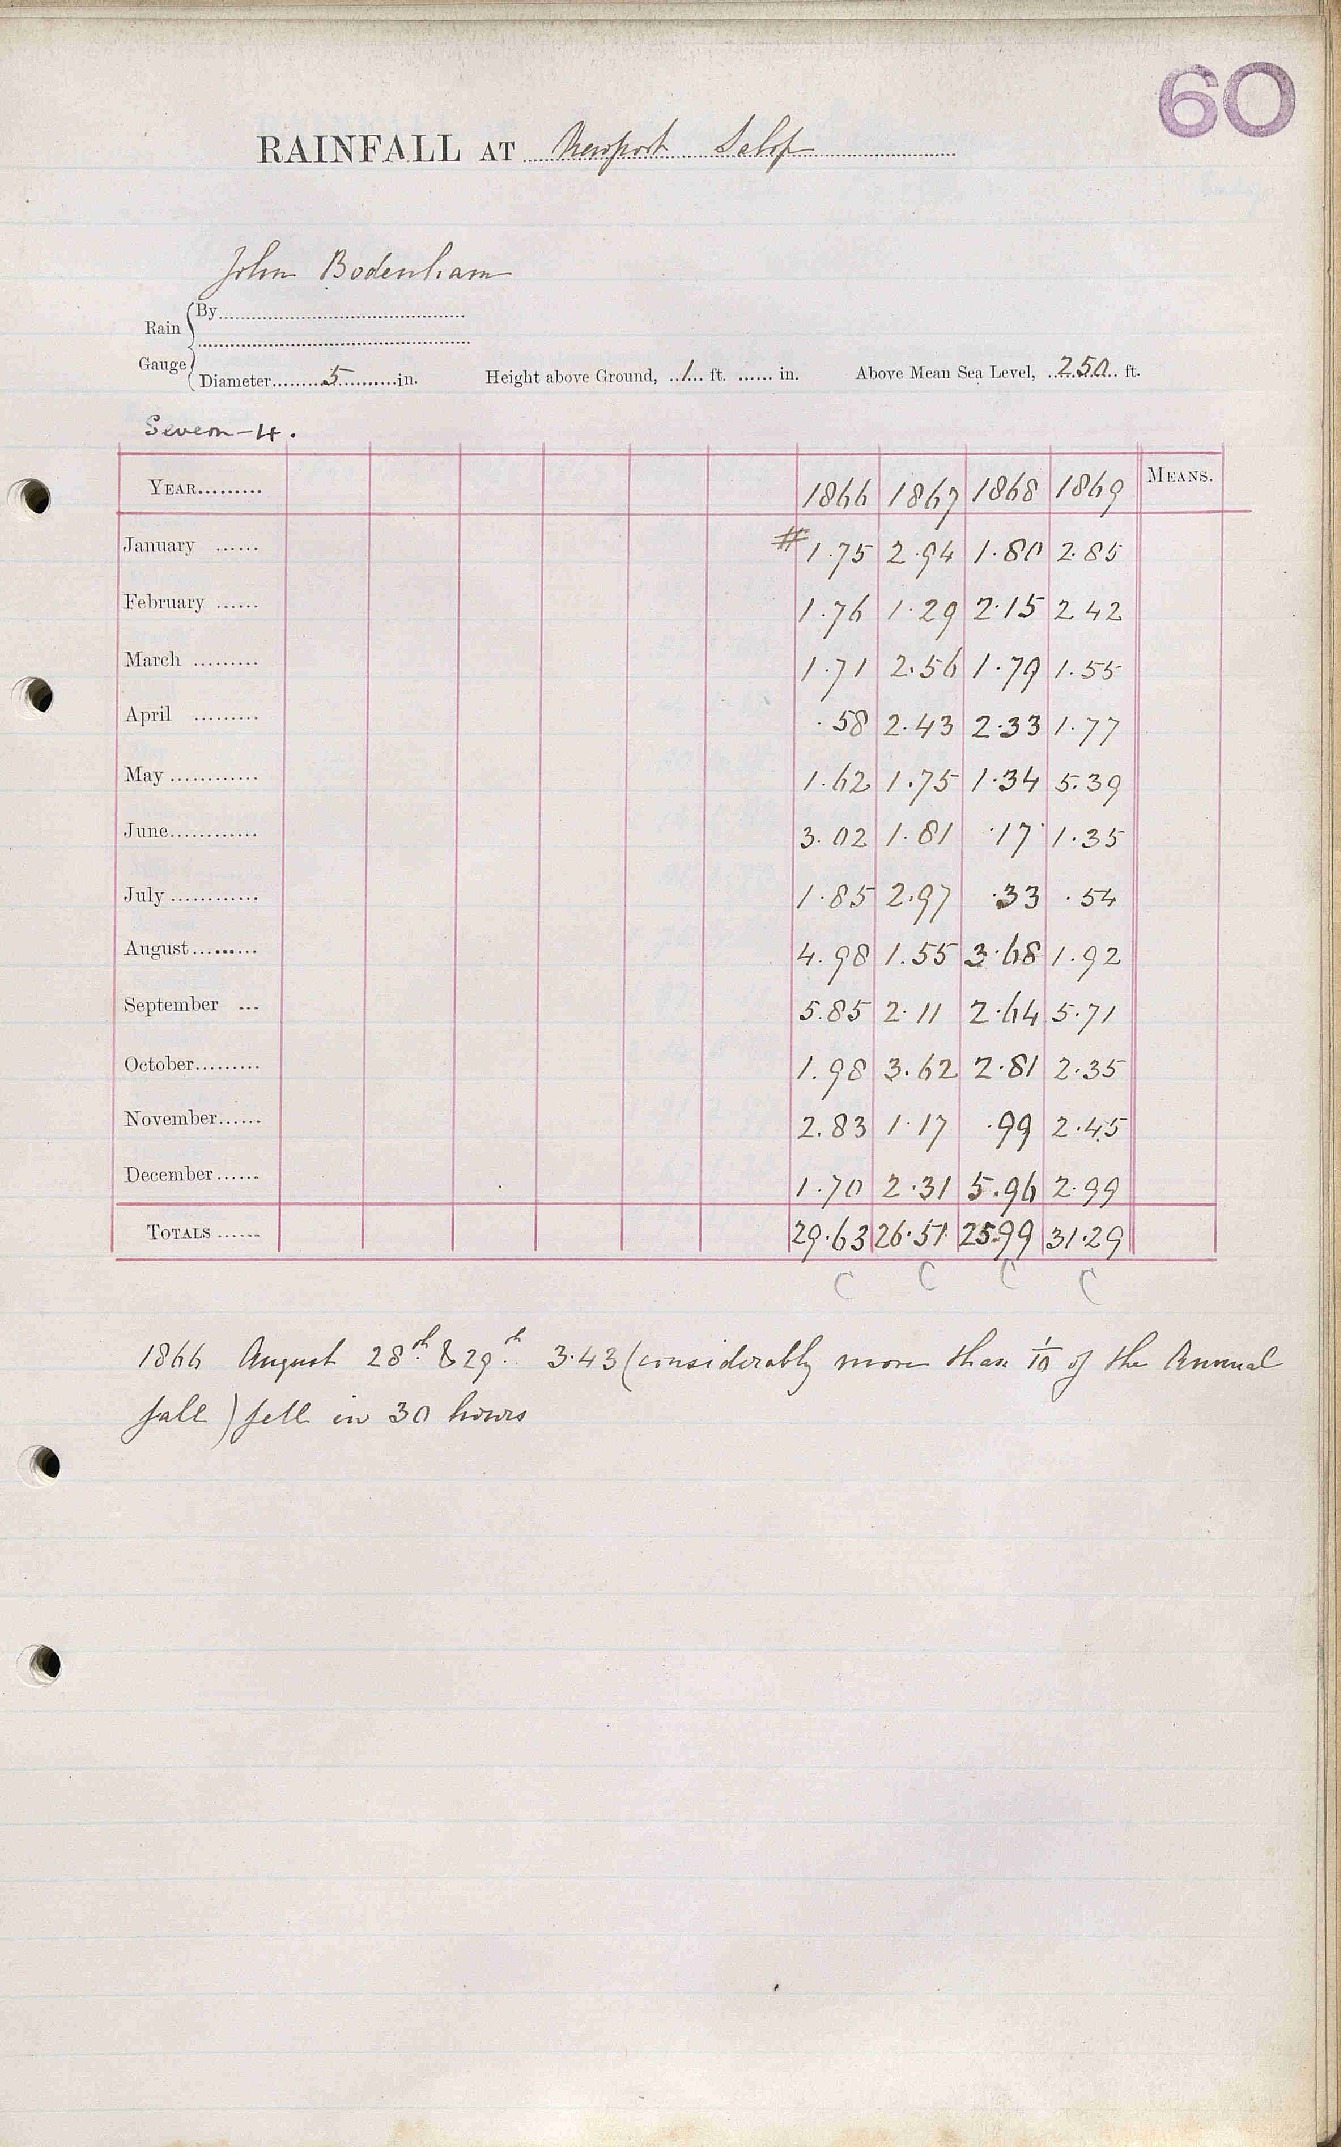 60
RAINFALL AT Newport Salop
John Bodenham
Rain Gauge { By
Diameter 5 in. Height above Ground, 1 ft. in. Above Mean Sea Level, 250 ft.
Severn-4.
YEAR 1866 1867 1868 1869 MEANS.
January # 1.75 2.94 1.80 2.85
February 1.76 1.29 2.15 2.42
March 1.71 2.56 1.79 1.55
April .58 2.43 2.33 1.77
May 1.62 1.75 1.34 5.39
June 3.02 1.81 .17 1.35
July 1.85 2.97 .33 .54
August 4.98 1.55 3.68 1.92
September 5.85 2.11 2.64 5.71
October 1.98 3.62 2.81 2.35
November 2.83 1.17 .99 2.45
December 1.70 2.31 5.96 2.99
TOTALS 29.63 26.51 25.99 31.29
C C C C
1866 August 28th & 29th 3.43 (considerably more than 1/10 of the Annual
fall) fell in 30 hours